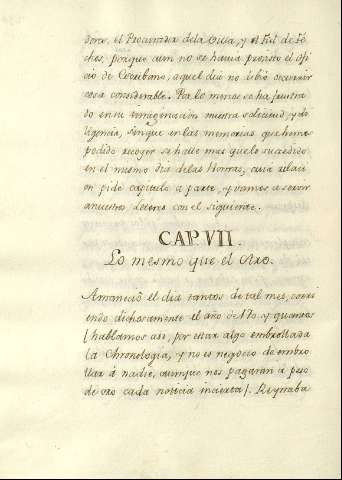 dores, el Procurador de la Villa, y el Fiel de Fe-
chos, porque aun no se havia provisto el ofi-
cio de Escribano, aquel dia no debiò ocurrir
cosa considerable. Por lo menos se ha frustra-
do en su imaginación nuestra solicitud, y di-
ligencia, sin que en las memorias que hemos
podido recoger se halle mas que lo sucedido
en el mismo dia de las Honras, cuia relaci-
on pide capitulo à parte, y vamos a servir
a nuestros letores con el siguiente.
CAP. VII.
Lo mesmo que el otro.
Amaneciò el dia tantos de tal mes, corri-
endo dichosamente el año de 170. y quantos
[hablamos asi, por estar algo embrollada
la Chronologia, y no es negocio de embro-
llar à nadie, aunque nos pagaran à peso
de oro cada noticia incierta]. Reynaba